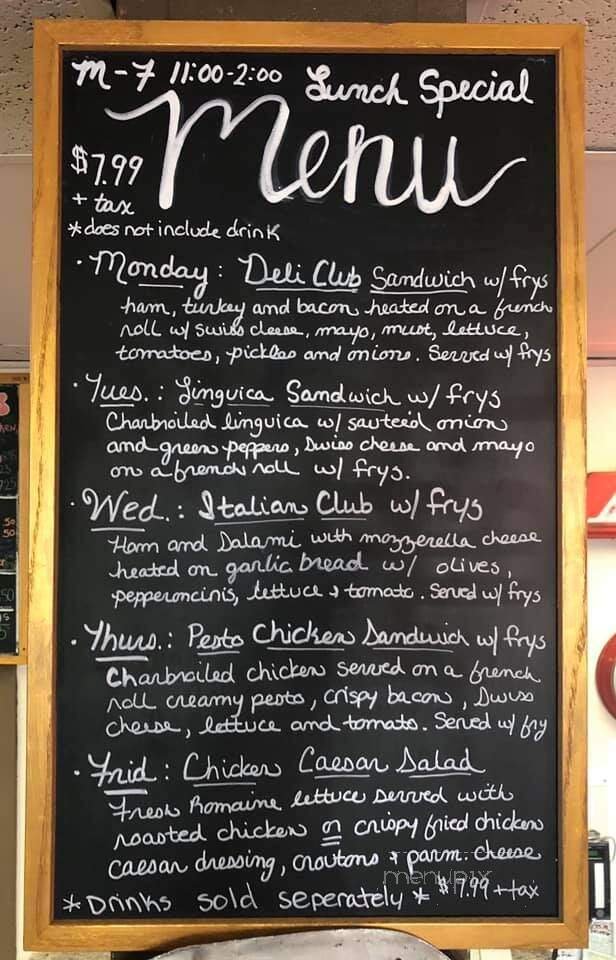 M-F 11:00-2:00 Lunch Special
Menu
$7.99
+ tax
*does not include drink
· Monday: Deli Club Sandwich w/ frys
ham, turkey and bacon heated on a french
roll w/ swiss cleese, mayo, must, lettuce,
tomatoes, pickles and onions. Served w/ frys
· Tues.: Linguica Sandwich w/ frys
Charbroiled linguica w/ sauteed onion
and green peppers, Swiss cheese and mayo
on a french roll w/ frys.
· Wed.: Italian Club w/ frys
Ham and Salami with mozzerella cheese
heated on garlic bread w/ olives,
pepperoncinis, lettuce + tomato. Served w/ frys
· Thurs.: Pesto Chicken Sandwich w/ frys
Charbroiled chicken served on a french
roll creamy pesto, crispy bacon, Swiss
cheese, lettuce and tomato. Served w/ fry
· Frid: Chicken Caesar Salad
Fresh Romaine lettuce served with
roasted chicken or crispy fried chicken
caesar dressing, croutons + parm. cheese
menupix
*Drinks sold seperately* $7.99 + tax